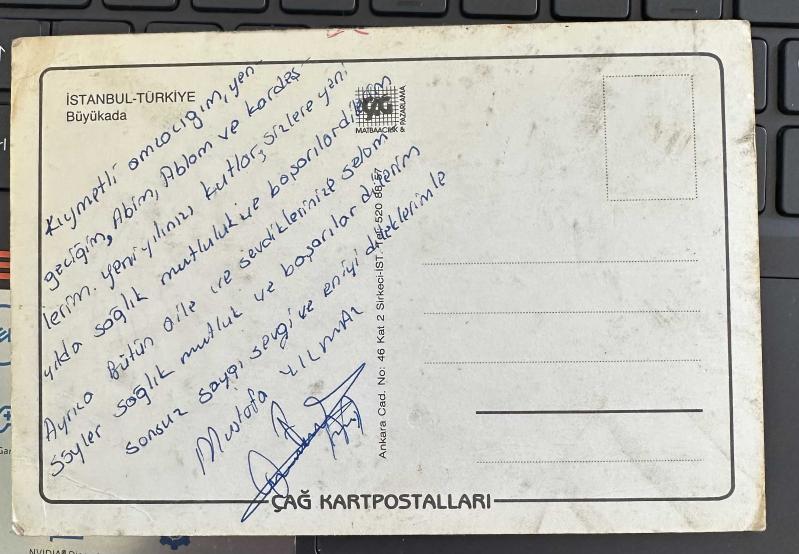 İSTANBUL-TÜRKİYE
Büyükada
Kıymetli amcacığım, yen-
geciğim, Abim, Ablam ve kardeş-
lerim. yeni yılınızı kutlar, sizlere yeni
yılda sağlık mutluluk ve başarılar dilerim
Ayrıca bütün aile ve sevdiklerinize selam
söyler sağlık mutluk ve başarılar dilerim
sonsuz saygı sevgi ve en iyi dileklerimle
Mustafa YILMAZ
ÇAĞ
MATBAACILIK & PAZARLAMA
Ankara Cad. No: 46 Kat 2 Sirkeci-İST. Tel: 520 88 57
ÇAĞ KARTPOSTALLARI